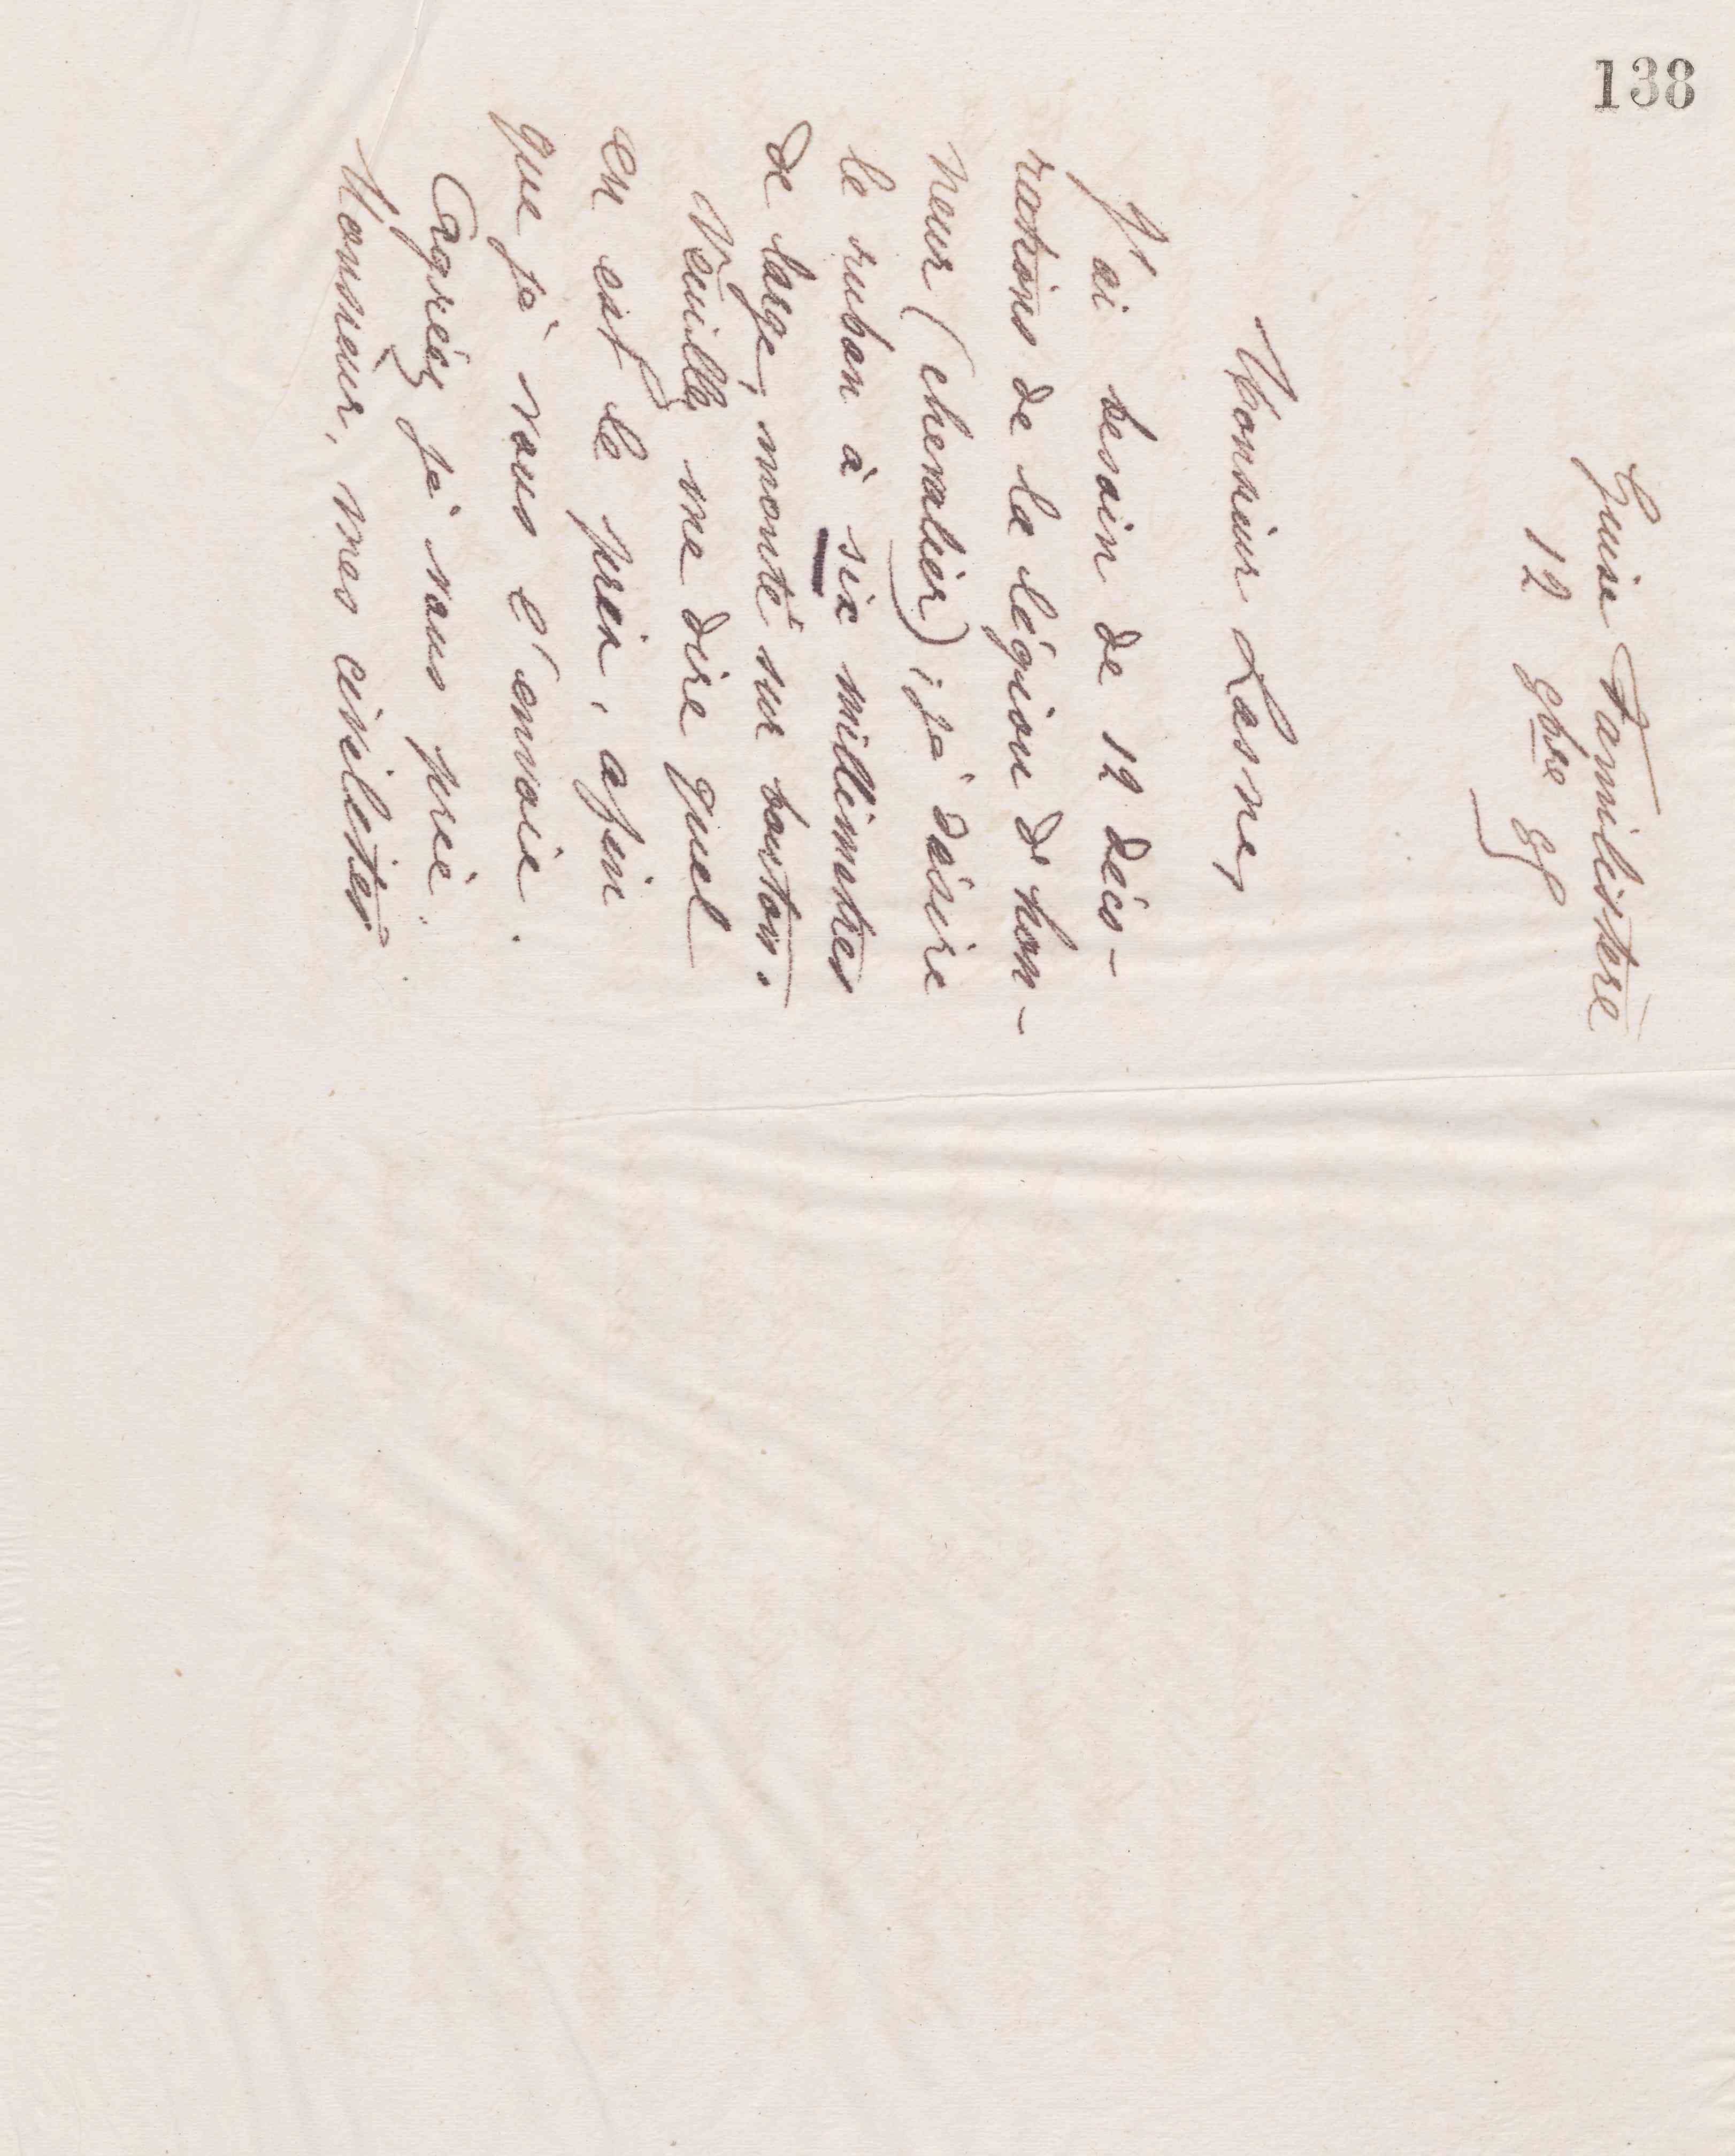 138
Guise Familistère
12 9bre 98
Monsieur Lasne,
J'ai besoin de 12 déco-
rations de la légion d'hon-
neur (chevalier); je désire
le ruban à six millimètres
de large, monté sur bouton.
Veuillez me dire quel
en est le prix, afin
que je vous l'envoie.
Agréez je vous prie,
Monsieur, mes civilités